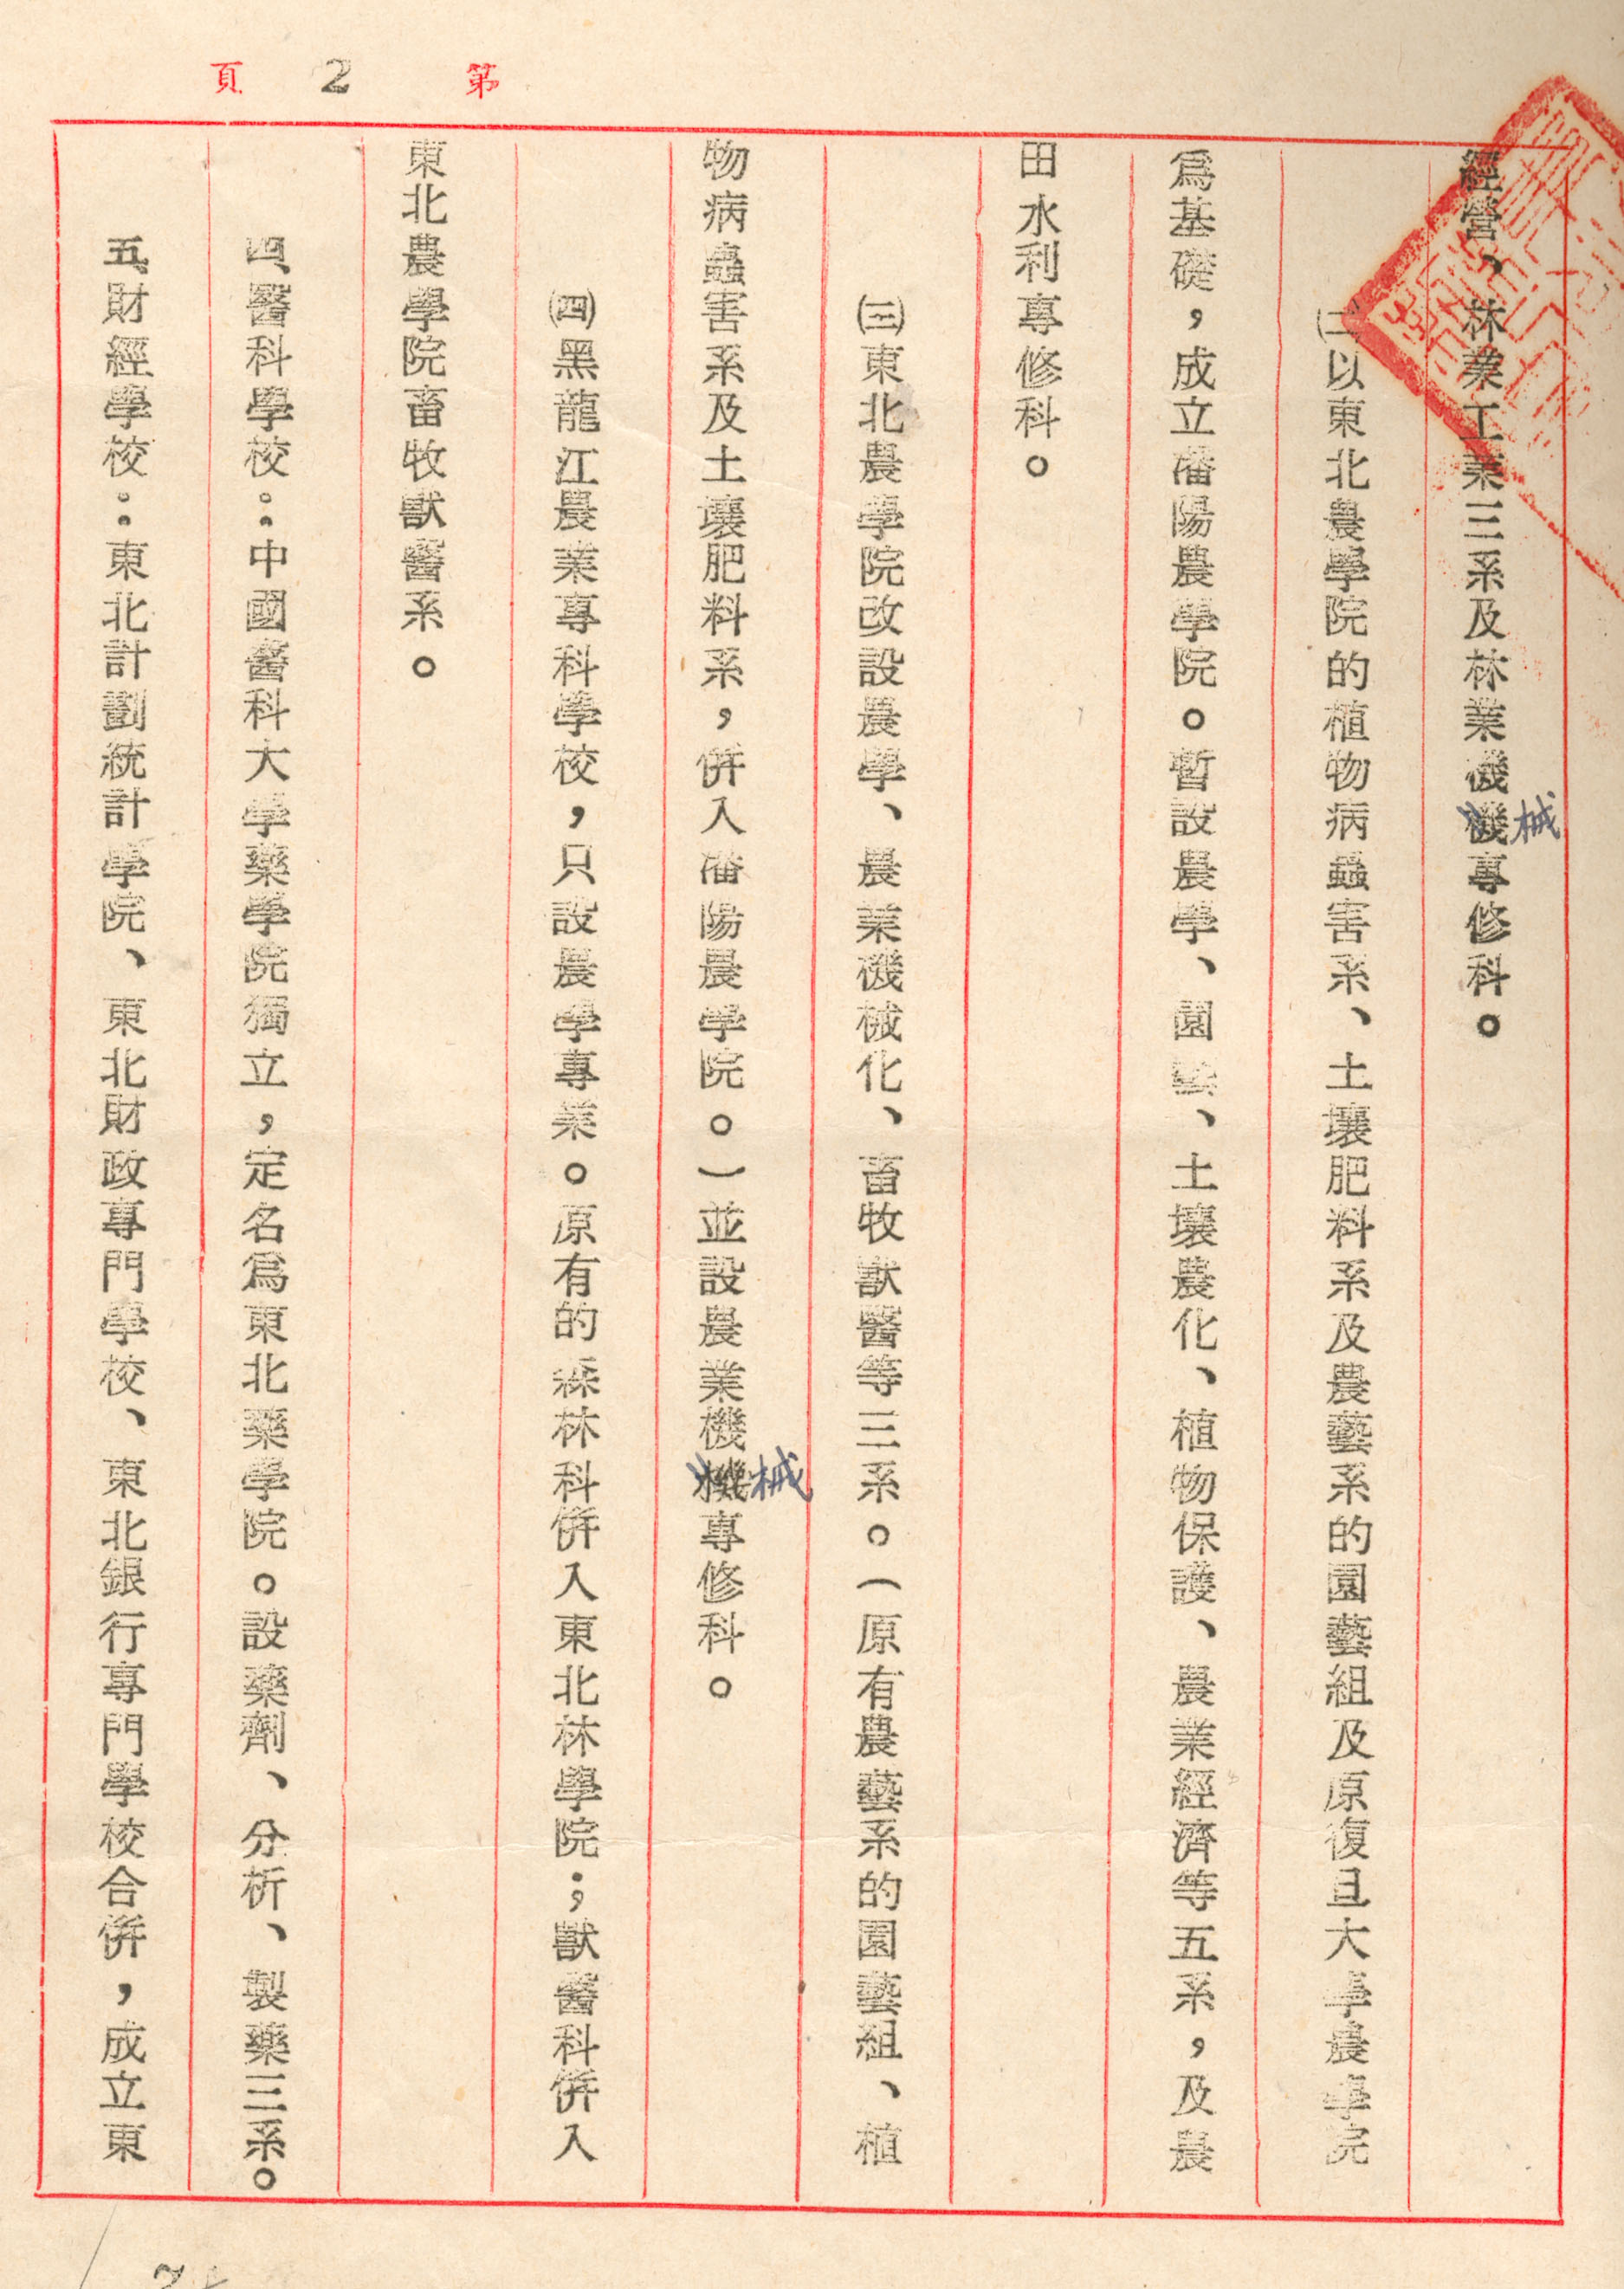 第 2 頁
經營、林業工業三系及林業機械專修科。
㈡以東北農學院的植物病蟲害系、土壤肥料系及農藝系的園藝組及原復旦大學農學院
爲基礎,成立瀋陽農學院。暫設農學、園藝、土壤農化、植物保護、農業經濟等五系,及農
田水利專修科。
㈢東北農學院改設農學、農業機械化、畜牧獸醫等三系。(原有農藝系的園藝組、植
物病蟲害系及土壤肥料系,併入瀋陽農學院。)並設農業機械專修科。
㈣黑龍江農業專科學校,只設農學專業。原有的森林科併入東北林學院;獸醫科併入
東北農學院畜牧獸醫系。
四、醫科學校:中國醫科大學藥學院獨立,定名爲東北藥學院。設藥劑、分析、製藥三系。
五、財經學校:東北計劃統計學院、東北財政專門學校、東北銀行專門學校合併,成立東